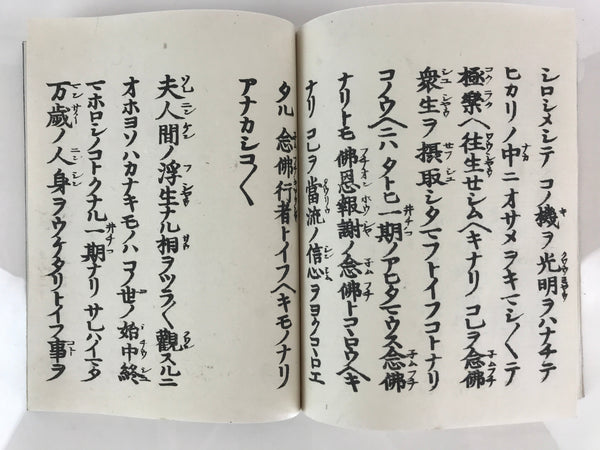 シロシメシテ コノ機ヲ光明ヲハナチテ
ヒカリノ中ニオサメヲキマシ〱テ
極樂ヘ往生セシムヘキナリ コレヲ念佛
衆生ヲ攝取シタマフトイフコトナリ
コノウヘニハ タトヒ一期ノアヒタマウス念佛
ナリトモ 佛恩報謝ノ念佛トコヽロウヘキ
ナリ コレヲ當流ノ信心ヲヨクコヽロエ
タル 念佛行者トイフヘキモノナリ
アナカシコ〱
夫人間ノ浮生ナル相ヲツラ〱觀スルニ
オホヨソハカナキモノハ コノ世ノ始中終
マホロシノコトクナル一期ナリ サレハイマタ
万歳ノ人身ヲウケタリトイフ事ヲ